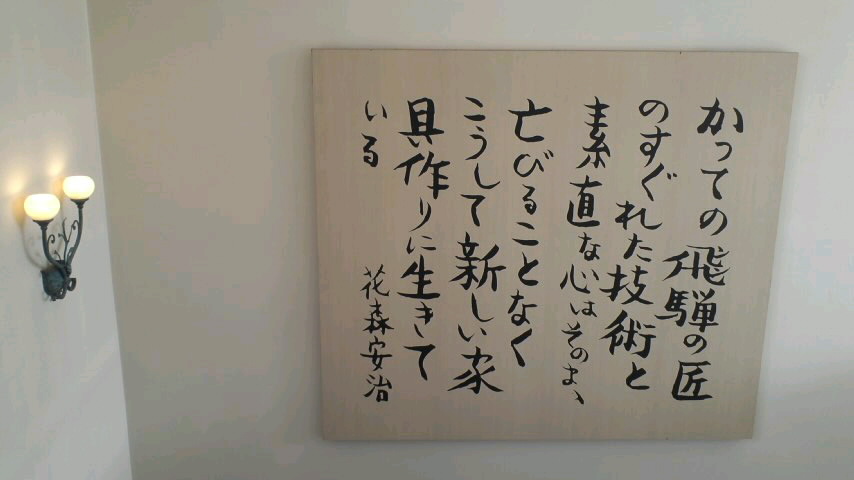 かつての飛騨の匠
のすぐれた技術と
素直な心はそのまゝ
亡びることなく
こうして新しい家
具作りに生きて
いる
花森安治